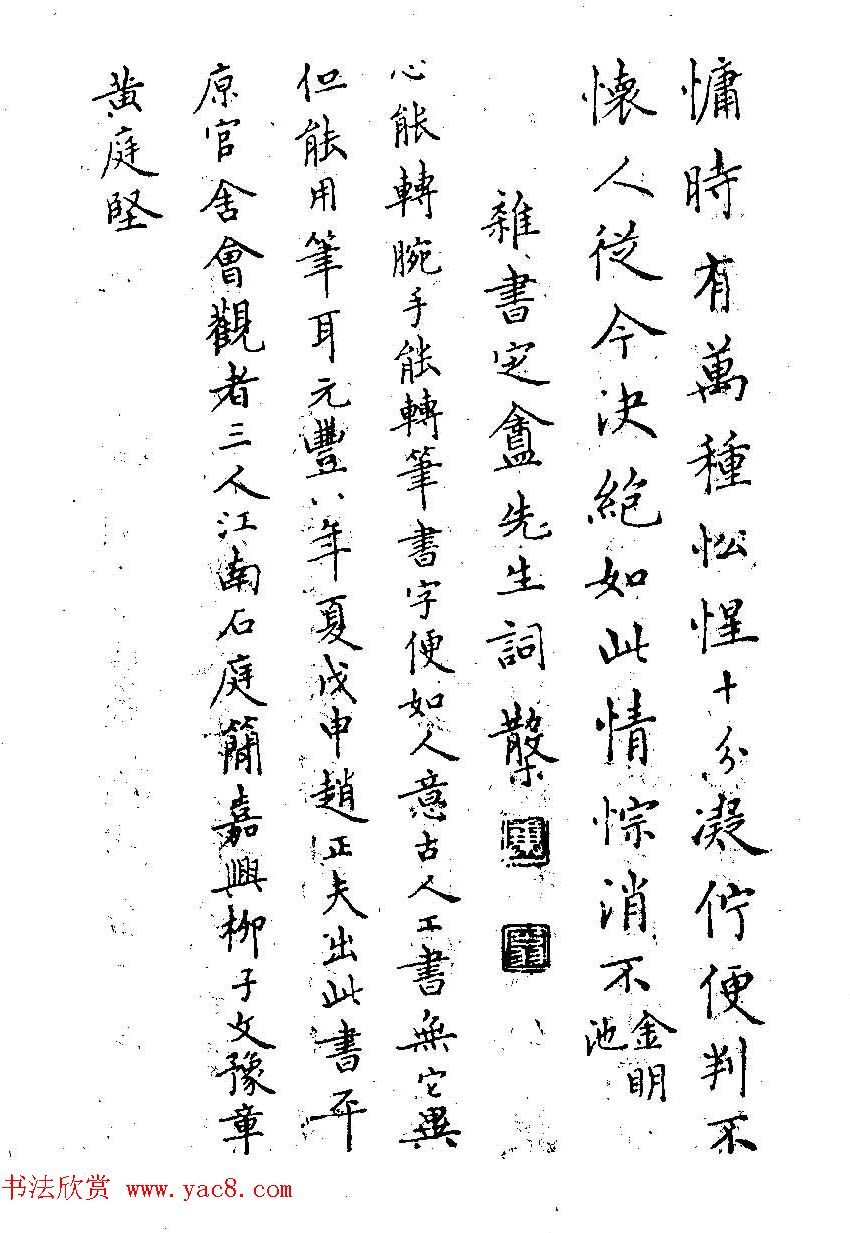 慵時有萬種忪惺十分凝佇便判不
懷人從今決絕如此情悰消不
金明
池
雜書定盦先生詞
心能轉腕手能轉筆書字便如人意古人工書無它異
但能用筆耳元豐八年夏戊申趙正夫出此書平
原官舍會觀者三人江南石庭簡嘉興柳子文豫章
黃庭堅
书法欣赏 www.yac8.com